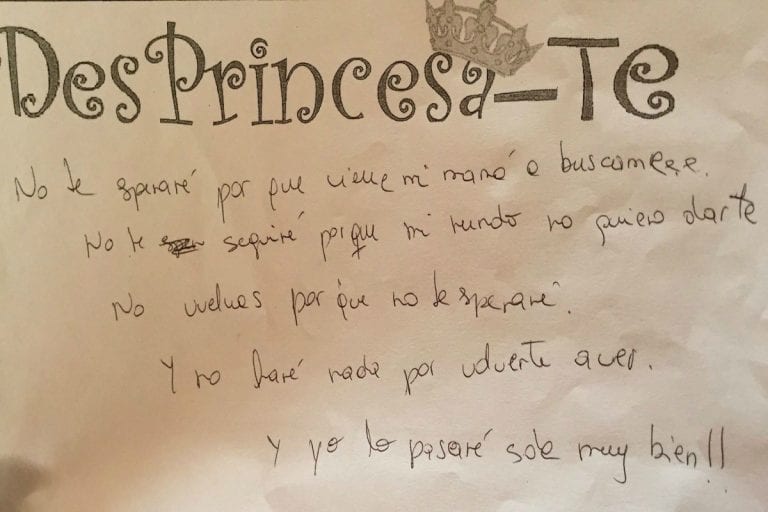 DesPrincesa-Te
No te speraré por que viene mi mamá a buscarme.
No te seguiré porque mi mundo no quiero darte
No vuelvas por que no te speraré.
Y no haré nada por volverte a ver.
Y yo lo pasaré sola muy bien!!